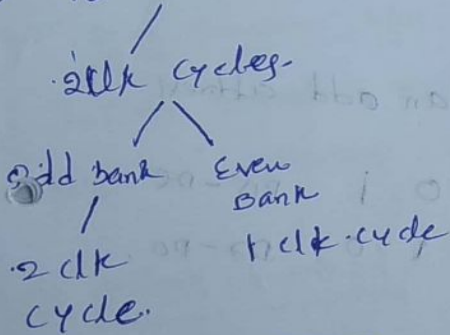 2clk cycles.
odd bank
Even
Bank
1 clk.cycle
2 clk
cycle.